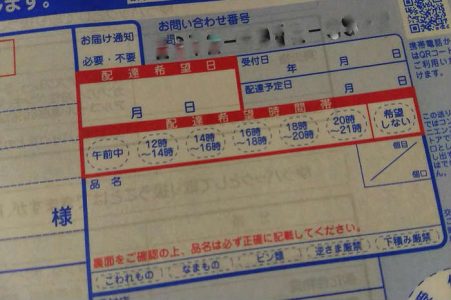 します。
お届け通知
必要・不要
お問い合わせ番号
受付日
年 月 日
配達予定日
月 日
配達希望日
月 日
配達希望時間帯
午前中
12時～14時
14時～16時
16時～18時
18時～20時
20時～21時
希望しない
品名
個目
個口
様
裏面をご確認の上、品名は必ず正確に記載してください。
こわれもの
なまもの
ビン類
逆さま厳禁
下積み厳禁
携帯電話か
はQRコート
ご利用いた
けます。